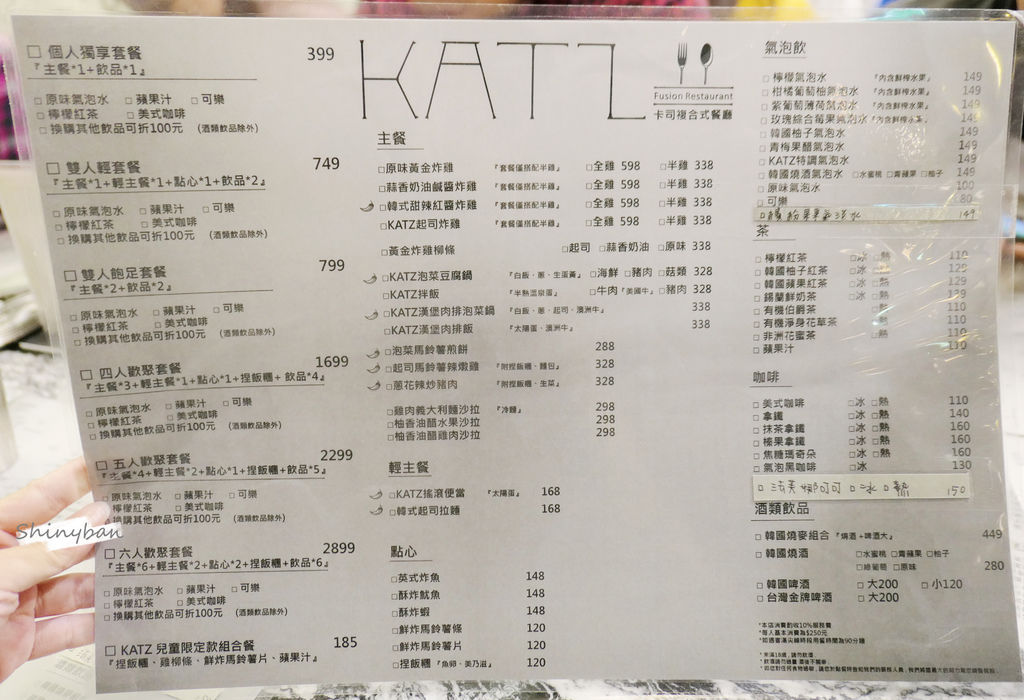 □ 個人獨享套餐 399
『主餐*1+飲品*1』
□ 原味氣泡水 □ 蘋果汁 □ 可樂
□ 檸檬紅茶 □ 美式咖啡
□ 換購其他飲品可折100元 (酒類飲品除外)
□ 雙人輕套餐 749
『主餐*1+輕主餐*1+點心*1+飲品*2』
□ 原味氣泡水 □ 蘋果汁 □ 可樂
□ 檸檬紅茶 □ 美式咖啡
□ 換購其他飲品可折100元 (酒類飲品除外)
□ 雙人飽足套餐 799
『主餐*2+飲品*2』
□ 原味氣泡水 □ 蘋果汁 □ 可樂
□ 檸檬紅茶 □ 美式咖啡
□ 換購其他飲品可折100元 (酒類飲品除外)
□ 四人歡聚套餐 1699
『主餐*3+輕主餐*1+點心*1+捏飯糰+飲品*4』
□ 原味氣泡水 □ 蘋果汁 □ 可樂
□ 檸檬紅茶 □ 美式咖啡
□ 換購其他飲品可折100元 (酒類飲品除外)
□ 五人歡聚套餐 2299
『主餐*4+輕主餐*2+點心*1+捏飯糰+飲品*5』
□ 原味氣泡水 □ 蘋果汁 □ 可樂
□ 檸檬紅茶 □ 美式咖啡
□ 換購其他飲品可折100元 (酒類飲品除外)
Shinyban
□ 六人歡聚套餐 2899
『主餐*6+輕主餐*2+點心*2+捏飯糰+飲品*6』
□ 原味氣泡水 □ 蘋果汁 □ 可樂
□ 檸檬紅茶 □ 美式咖啡
□ 換購其他飲品可折100元 (酒類飲品除外)
□ KATZ 兒童限定款組合餐 185
『捏飯糰、雞柳條、鮮炸馬鈴薯片、蘋果汁』
KATZ
Fusion Restaurant
卡司複合式餐廳
主餐
□原味黃金炸雞 『套餐僅搭配半雞』 □全雞 598 □半雞 338
□蒜香奶油鹹醬炸雞 『套餐僅搭配半雞』 □全雞 598 □半雞 338
□韓式甜辣紅醬炸雞 『套餐僅搭配半雞』 □全雞 598 □半雞 338
□KATZ起司炸雞 『套餐僅搭配半雞』 □全雞 598 □半雞 338
□黃金炸雞柳條 □起司 □蒜香奶油 □原味 338
□KATZ泡菜豆腐鍋 『白飯、蔥、生蛋黃』 □海鮮 □豬肉 □菇類 328
□KATZ拌飯 『半熟溫泉蛋』 □牛肉『美國牛』 □豬肉 328
□KATZ漢堡肉排泡菜鍋 『白飯、蔥、起司、澳洲牛』 338
□KATZ漢堡肉排飯 『太陽蛋、澳洲牛』 338
□泡菜馬鈴薯煎餅 288
□起司馬鈴薯辣燉雞 『附捏飯糰、麵包』 328
□蔥花辣炒豬肉 『附捏飯糰、生菜』 328
□雞肉義大利麵沙拉 『冷麵』 298
□柚香油醋水果沙拉 298
□柚香油醋雞肉沙拉 298
輕主餐
□KATZ搖滾便當 『太陽蛋』 168
□韓式起司拉麵 168
點心
□英式炸魚 148
□酥炸魷魚 148
□酥炸蝦 148
□鮮炸馬鈴薯條 120
□鮮炸馬鈴薯片 120
□捏飯糰『魚卵、美乃滋』 120
氣泡飲
□ 檸檬氣泡水 『內含鮮榨水果』 149
□ 柑橘葡萄柚氣泡水 『內含鮮榨水果』 149
□ 紫葡萄薄荷氣泡水 『內含鮮榨水果』 149
□ 玫瑰綜合莓果氣泡水『內含鮮榨水果』 149
□ 韓國柚子氣泡水 149
□ 青梅果醋氣泡水 149
□ KATZ特調氣泡水 149
□ 韓國燒酒氣泡水 □水蜜桃 □青蘋果 □柚子 149
□ 原味氣泡水 100
□ 可樂 80
□繽粉果果氣泡水 149
茶
□ 檸檬紅茶 □冰 □熱 110
□ 韓國柚子紅茶 □冰 □熱 129
□ 韓國蘋果紅茶 □冰 □熱 129
□ 錫蘭鮮奶茶 □冰 □熱 129
□ 有機伯爵茶 □熱 110
□ 有機淨身花草茶 □熱 110
□ 非洲花蜜茶 □熱 110
□ 蘋果汁 110
咖啡
□ 美式咖啡 □冰 □熱 110
□ 拿鐵 □冰 □熱 140
□ 抹茶拿鐵 □冰 □熱 160
□ 榛果拿鐵 □冰 □熱 160
□ 焦糖瑪奇朵 □冰 □熱 160
□ 氣泡黑咖啡 □冰 130
□ 法芙娜可可 □冰 □熱 150
酒類飲品
□ 韓國燒麥組合『燒酒+啤酒大』 449
□ 韓國燒酒 □水蜜桃 □青蘋果 □柚子
□綠葡萄 □原味 280
□ 韓國啤酒 □大200 □小120
□ 台灣金牌啤酒 □大200
*本店消費酌收10%服務費
*每人基本消費為$250元
*如遇客滿尖峰時段用餐時間為90分鐘
* 未滿18歲，請勿飲酒
* 飲酒請勿過量 酒後不開車